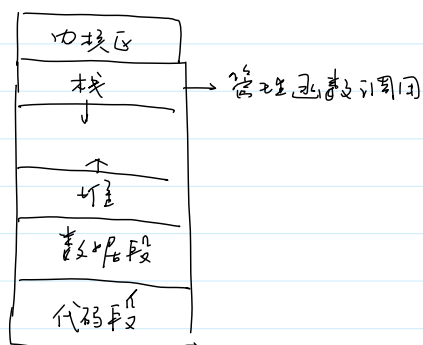 内核区
栈 → 管理函数调用
↓
↑
堆
数据段
代码段